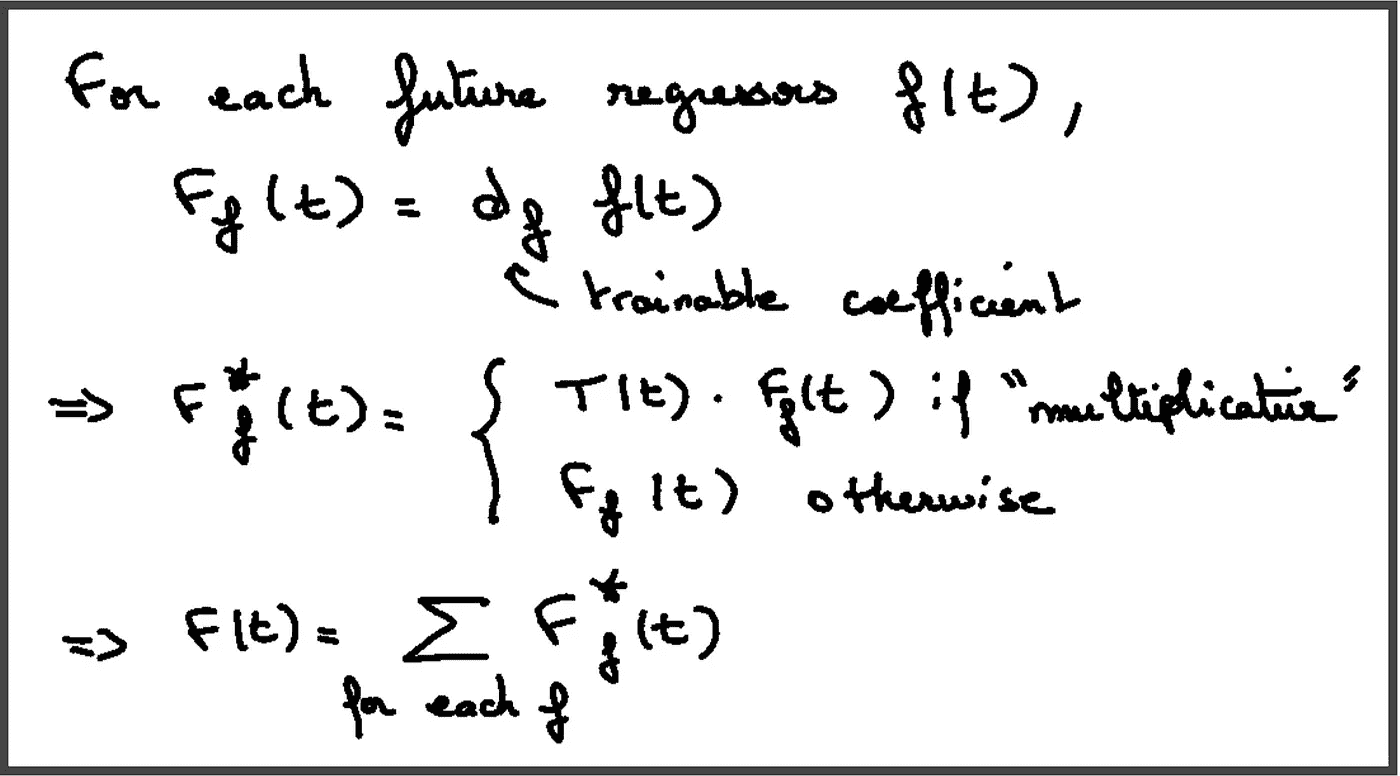 For each future regressors f(t),
F_f(t) = d_f f(t)
trainable coefficient
=> F*_f(t) = { T(t) . F_f(t) if "multiplicative"
F_f(t) otherwise
=> F(t) = Σ F*_f(t)
for each f